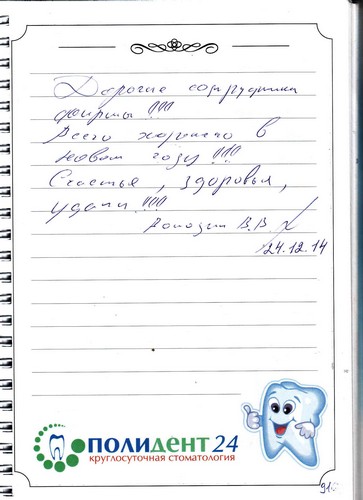 Дорогие сотрудники
фирмы !!!
Всего хорошего в
новом году !!!
Счастья, здоровья,
удачи !!!
В.В.
24.12.14
ПОЛИДЕНТ 24
круглосуточная стоматология